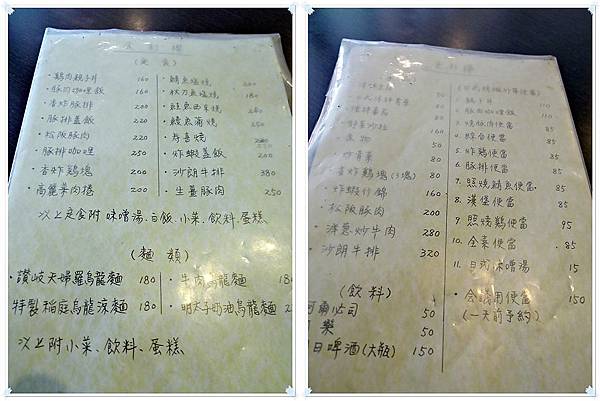 (定食)
・鷄肉親子丼 160
・豚肉咖哩飯 160
・香炸豚排 200
・豚排蓋飯 220
・松阪豚肉 220
・豚排咖哩 250
・香炸鷄塊 200
・高麗菜肉捲 200
・鯖魚塩燒 200
・秋刀魚塩燒 180
・鮭魚西京燒 280
・鰻魚蒲燒 250
・寿喜燒
・炸蝦蓋飯 200
・沙朗牛排 380
・生薑豚肉 250
以上定食附味噌湯、白飯、小菜、飲料、蛋糕
(麵類)
・讚岐天婦羅烏龍麵 180
特製稻庭烏龍涼麵 180
・牛肉烏龍麵 180
・明太子奶油烏龍麵
以上附小菜、飲料、蛋糕
・炸青菜 80
・香炸鷄塊(5塊) 80
・炸蝦什錦 160
・松阪豚肉 200
・洋蔥炒牛肉 280
・沙朗牛排 320
(飲料)
可爾必司 50
樂 50
日啤酒(大瓶) 150
1. 親子丼 85
2. 豚肉咖哩飯 85
3. 燒豚肉便當 85
4. 綜合便當 85
5. 炸鷄便當 85
6. 豚排便當 85
7. 照燒鯖魚便當 85
8. 漢堡便當 85
9. 照燒鷄便當 95
10. 全素便當 85
11. 日式味噌湯 15
・會議用便當 150
(一天前予約)